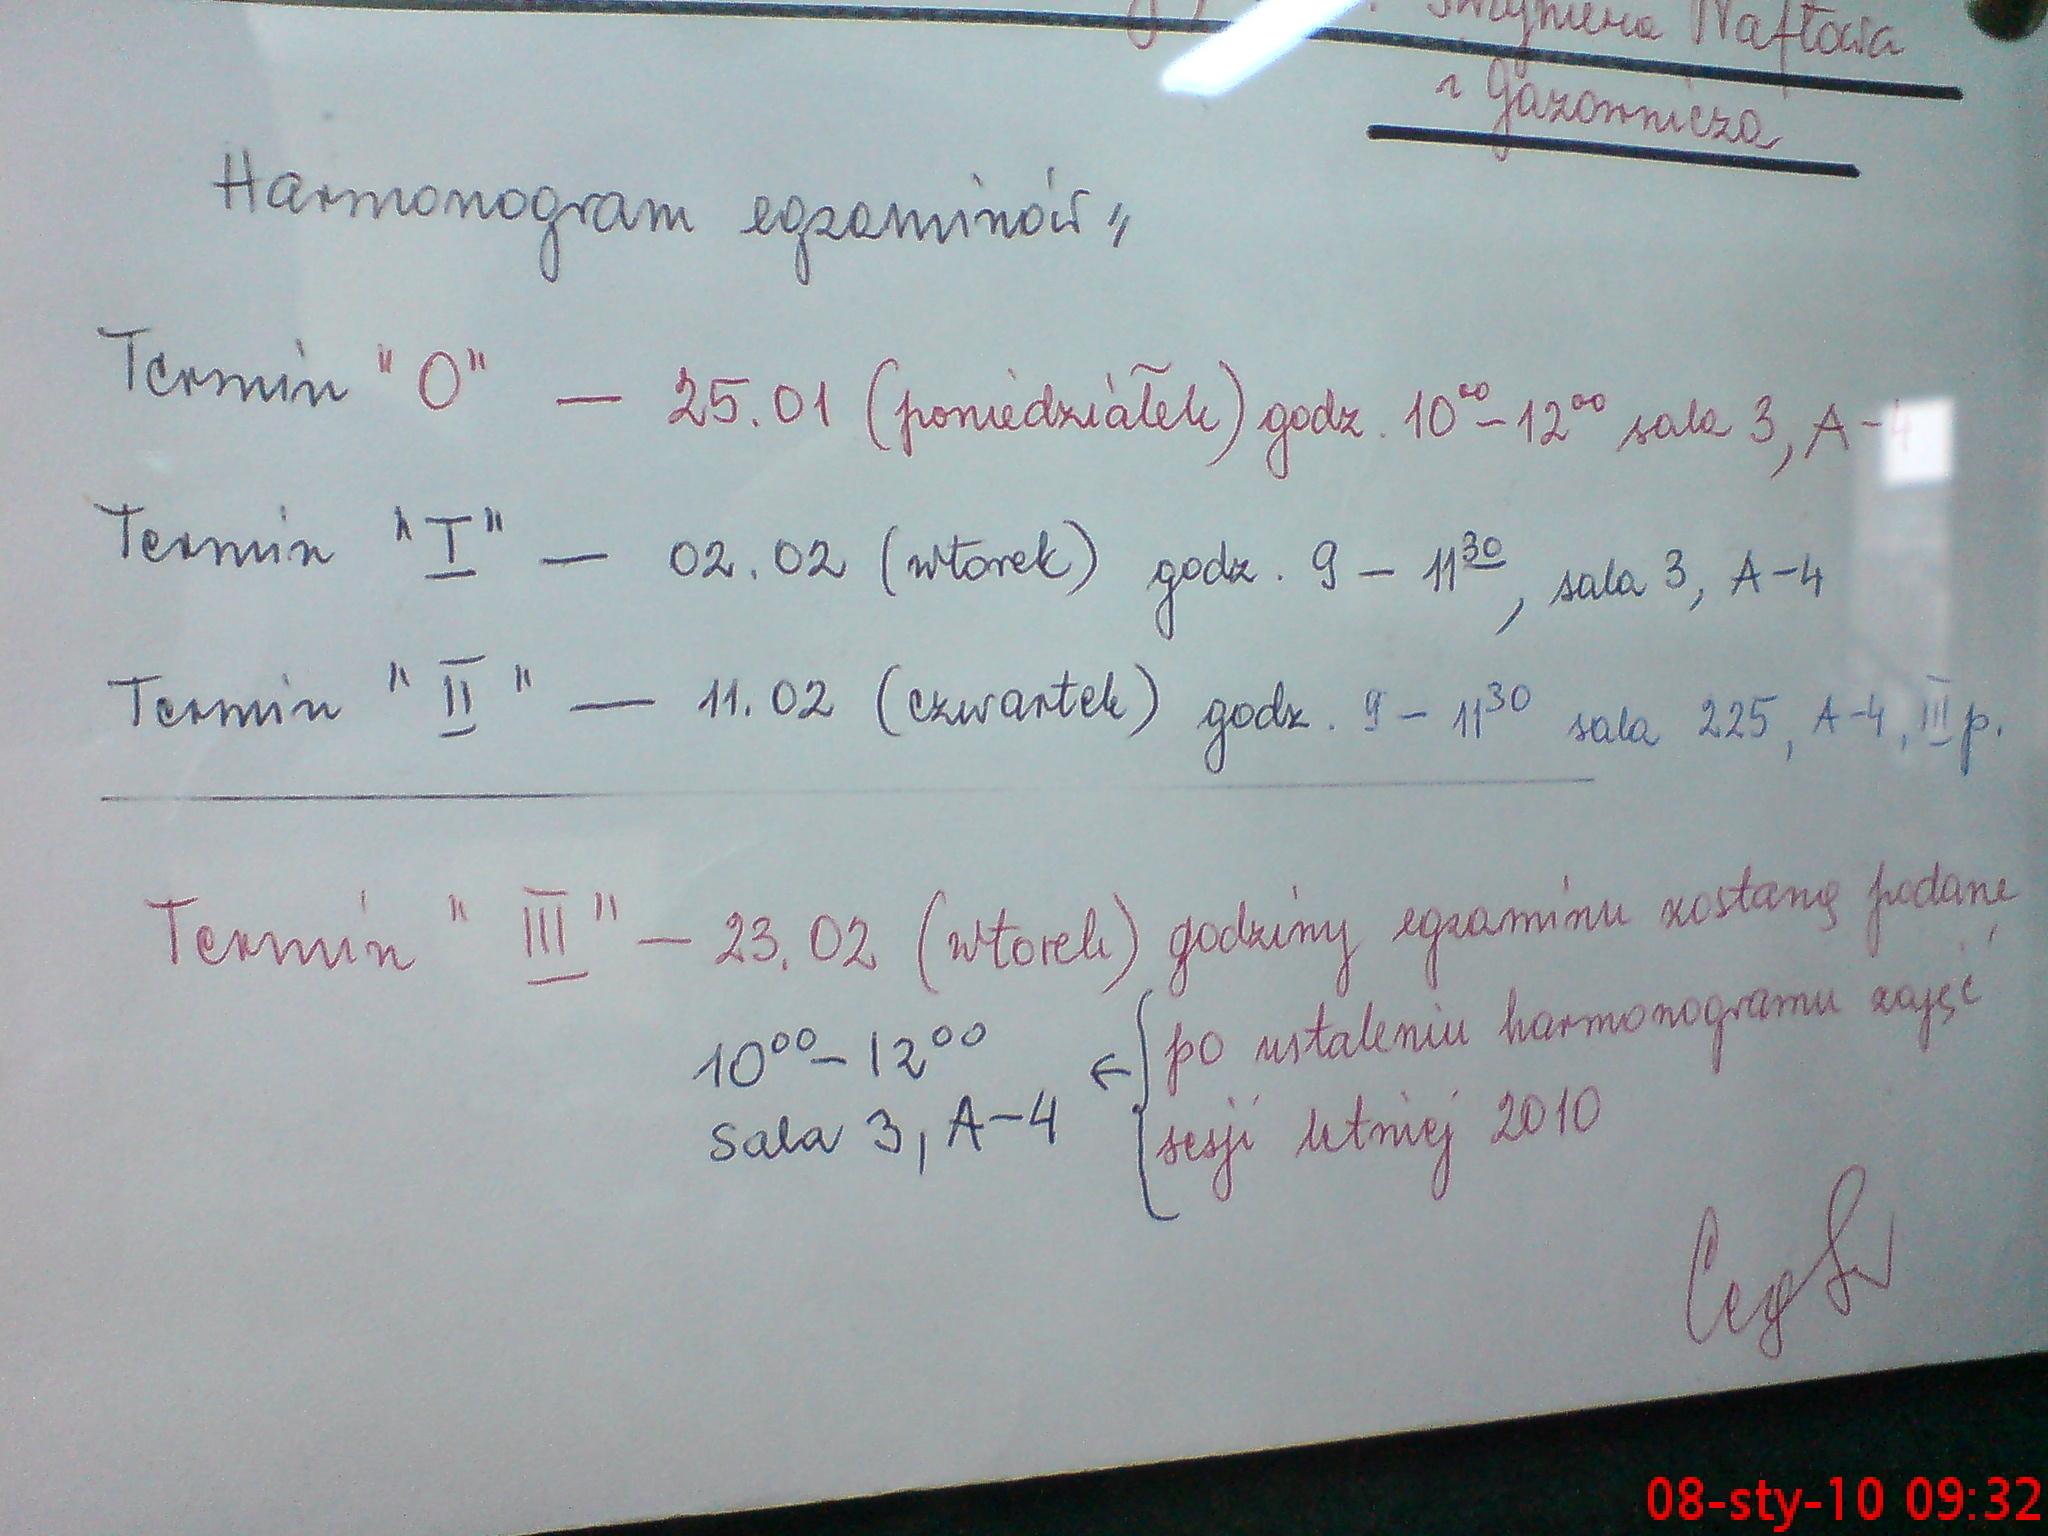 Inżynieria Naftowa
i Gazownicza
Harmonogram egzaminów,,
Termin "0" — 25.01 (poniedziałek) godz. 10⁰⁰ – 12⁰⁰ sala 3, A-4
Termin "I" — 02.02 (wtorek) godz. 9 – 11³⁰, sala 3, A-4
Termin "II" — 11.02 (czwartek) godz. 9 – 11³⁰ sala 225, A-4, III p.
Termin "III" — 23.02 (wtorek) godziny egzaminu zostaną podane
po ustaleniu harmonogramu zajęć
sesji letniej 2010
10⁰⁰ – 12⁰⁰ ←
Sala 3, A-4
08-sty-10 09:32